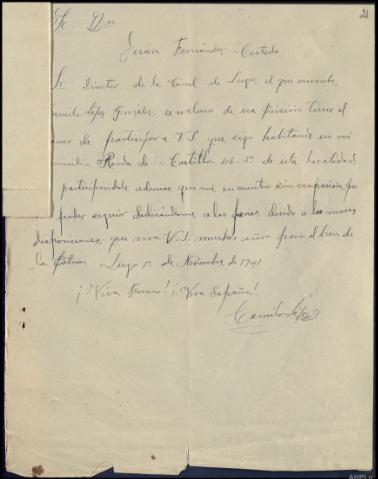 21
Sr Dn
Juan Fernández
Sr Director de la Carcel de Lugo, el que suscribe,
Camilo López González, ex-recluso de esa Prisión tiene el
honor de participar a V.S. que sigo habitando en mi
domicilio Ronda de Castilla 46-3º de esta localidad
participándole ademas que me encuentro sin ocupación por
poder seguir dedicándome a las debido a las nuevas
disposiciones, que viva V.S. muchos años para el bien de
la Patria Lugo 1º de Noviembre de 1941
¡Viva Franco! ¡Viva España!
Camilo López